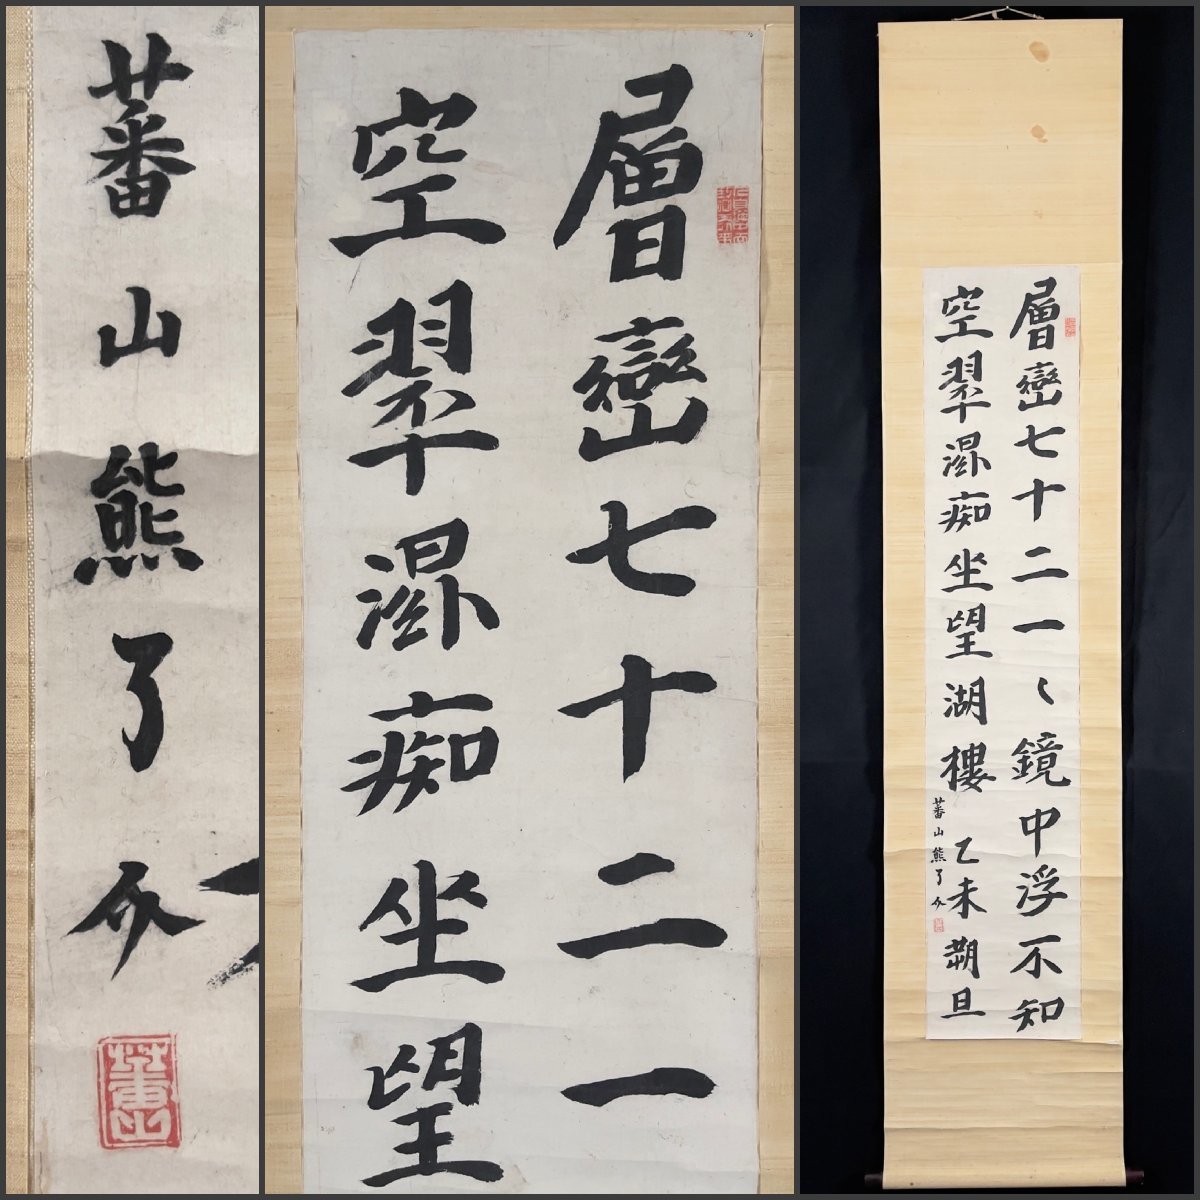 層巒七十二一〻鏡中浮不知
空翠濕痴坐望湖樓 乙未朔旦
蕃山熊了介
蕃山熊了介
蕃山
層巒七十二一
空翠濕痴坐望